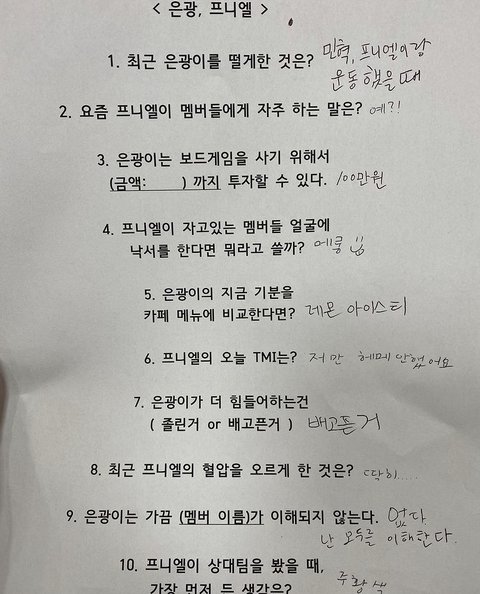 < 은광, 프니엘 >
1. 최근 은광이를 떨게한 것은? 민혁, 프니엘이랑
운동했을때
2. 요즘 프니엘이 멤버들에게 자주 하는 말은? 예?!
3. 은광이는 보드게임을 사기 위해서
(금액: ) 까지 투자할 수 있다. 100만원
4. 프니엘이 자고있는 멤버들 얼굴에
낙서를 한다면 뭐라고 쓸까? 메롱
5. 은광이의 지금 기분을
카페 메뉴에 비교한다면? 레몬 아이스티
6. 프니엘의 오늘 TMI는? 저만 헤메 안했어요
7. 은광이가 더 힘들어하는건
( 졸린거 or 배고픈거 ) 배고픈거
8. 최근 프니엘의 혈압을 오르게 한 것은? 딱히.....
9. 은광이는 가끔 (멤버 이름)가 이해되지 않는다. 없다.
난 모두를 이해한다.
10. 프니엘이 상대팀을 봤을 때,
가장 먼저 든 생각은? 주황색